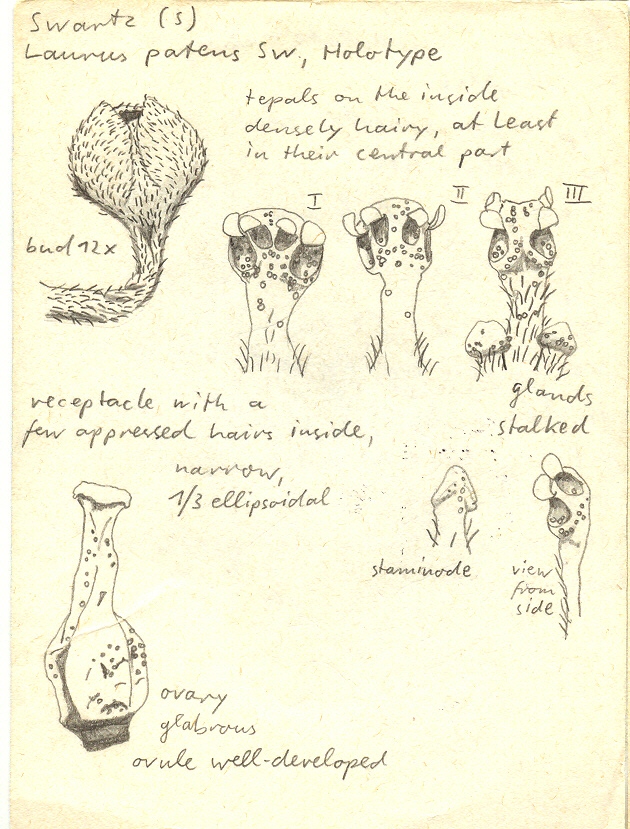 Swartz (S)
Laurus patens Sw., Holotype
tepals on the inside
densely hairy, at least
in their central part
bud 12x
I
II
III
glands
stalked
receptacle with a
few appressed hairs inside,
narrow,
1/3 ellipsoidal
staminode
view
from
side
ovary
glabrous
ovule well-developed